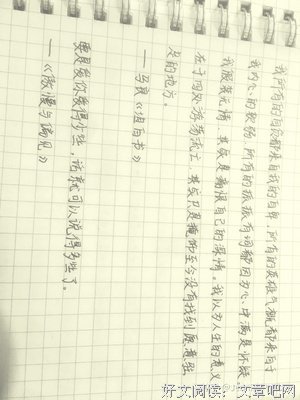 我所有的自负都来自我的自卑，所有的英雄气概都来自于
我内心的软弱，所有的振振有词都因为心中满是怀疑
我假装无情，其实是痛恨自己的深情。我以为人生的意义
在于四处游荡流亡，其实只是掩饰至今没有找到愿意驻
足的地方。
——马良《坦白书》
要是爱你爱得少些，话就可以说得多些了。
——《傲慢与偏见》
好文阅读：文章吧网